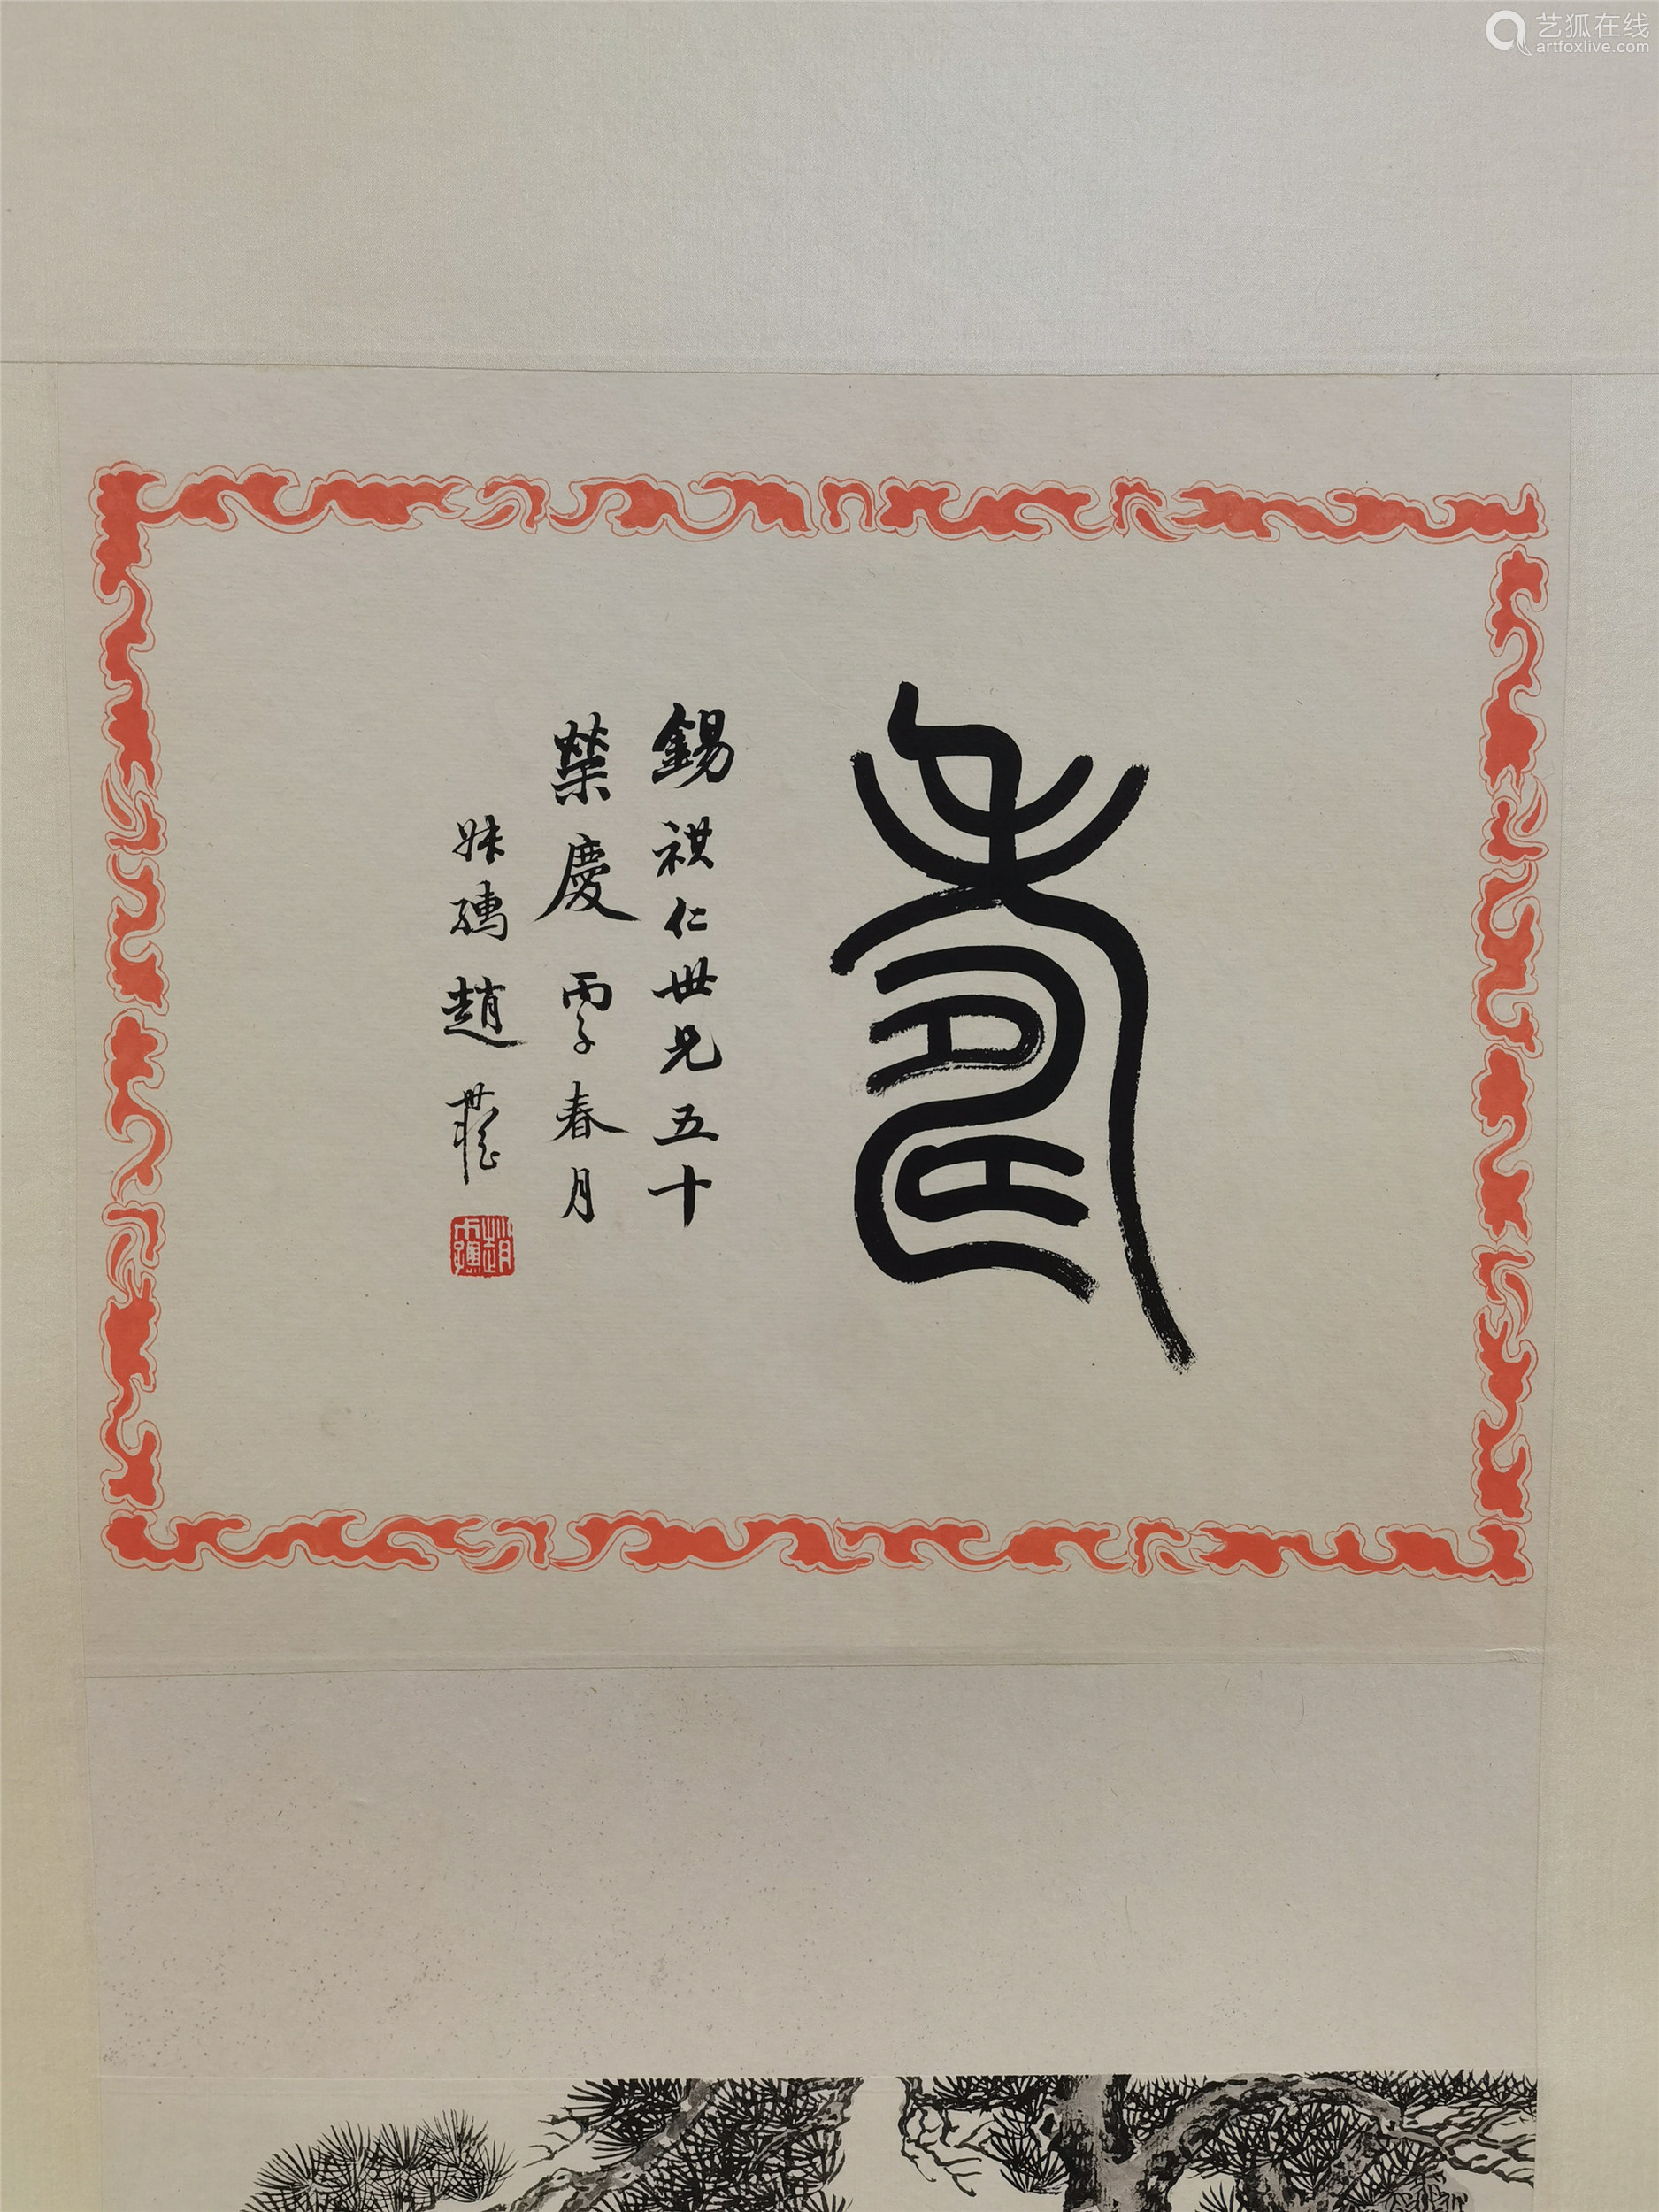 艺狐在线
artfoxlive.com
壽
錫祺仁世兄五十
榮慶 丙子春月
趙